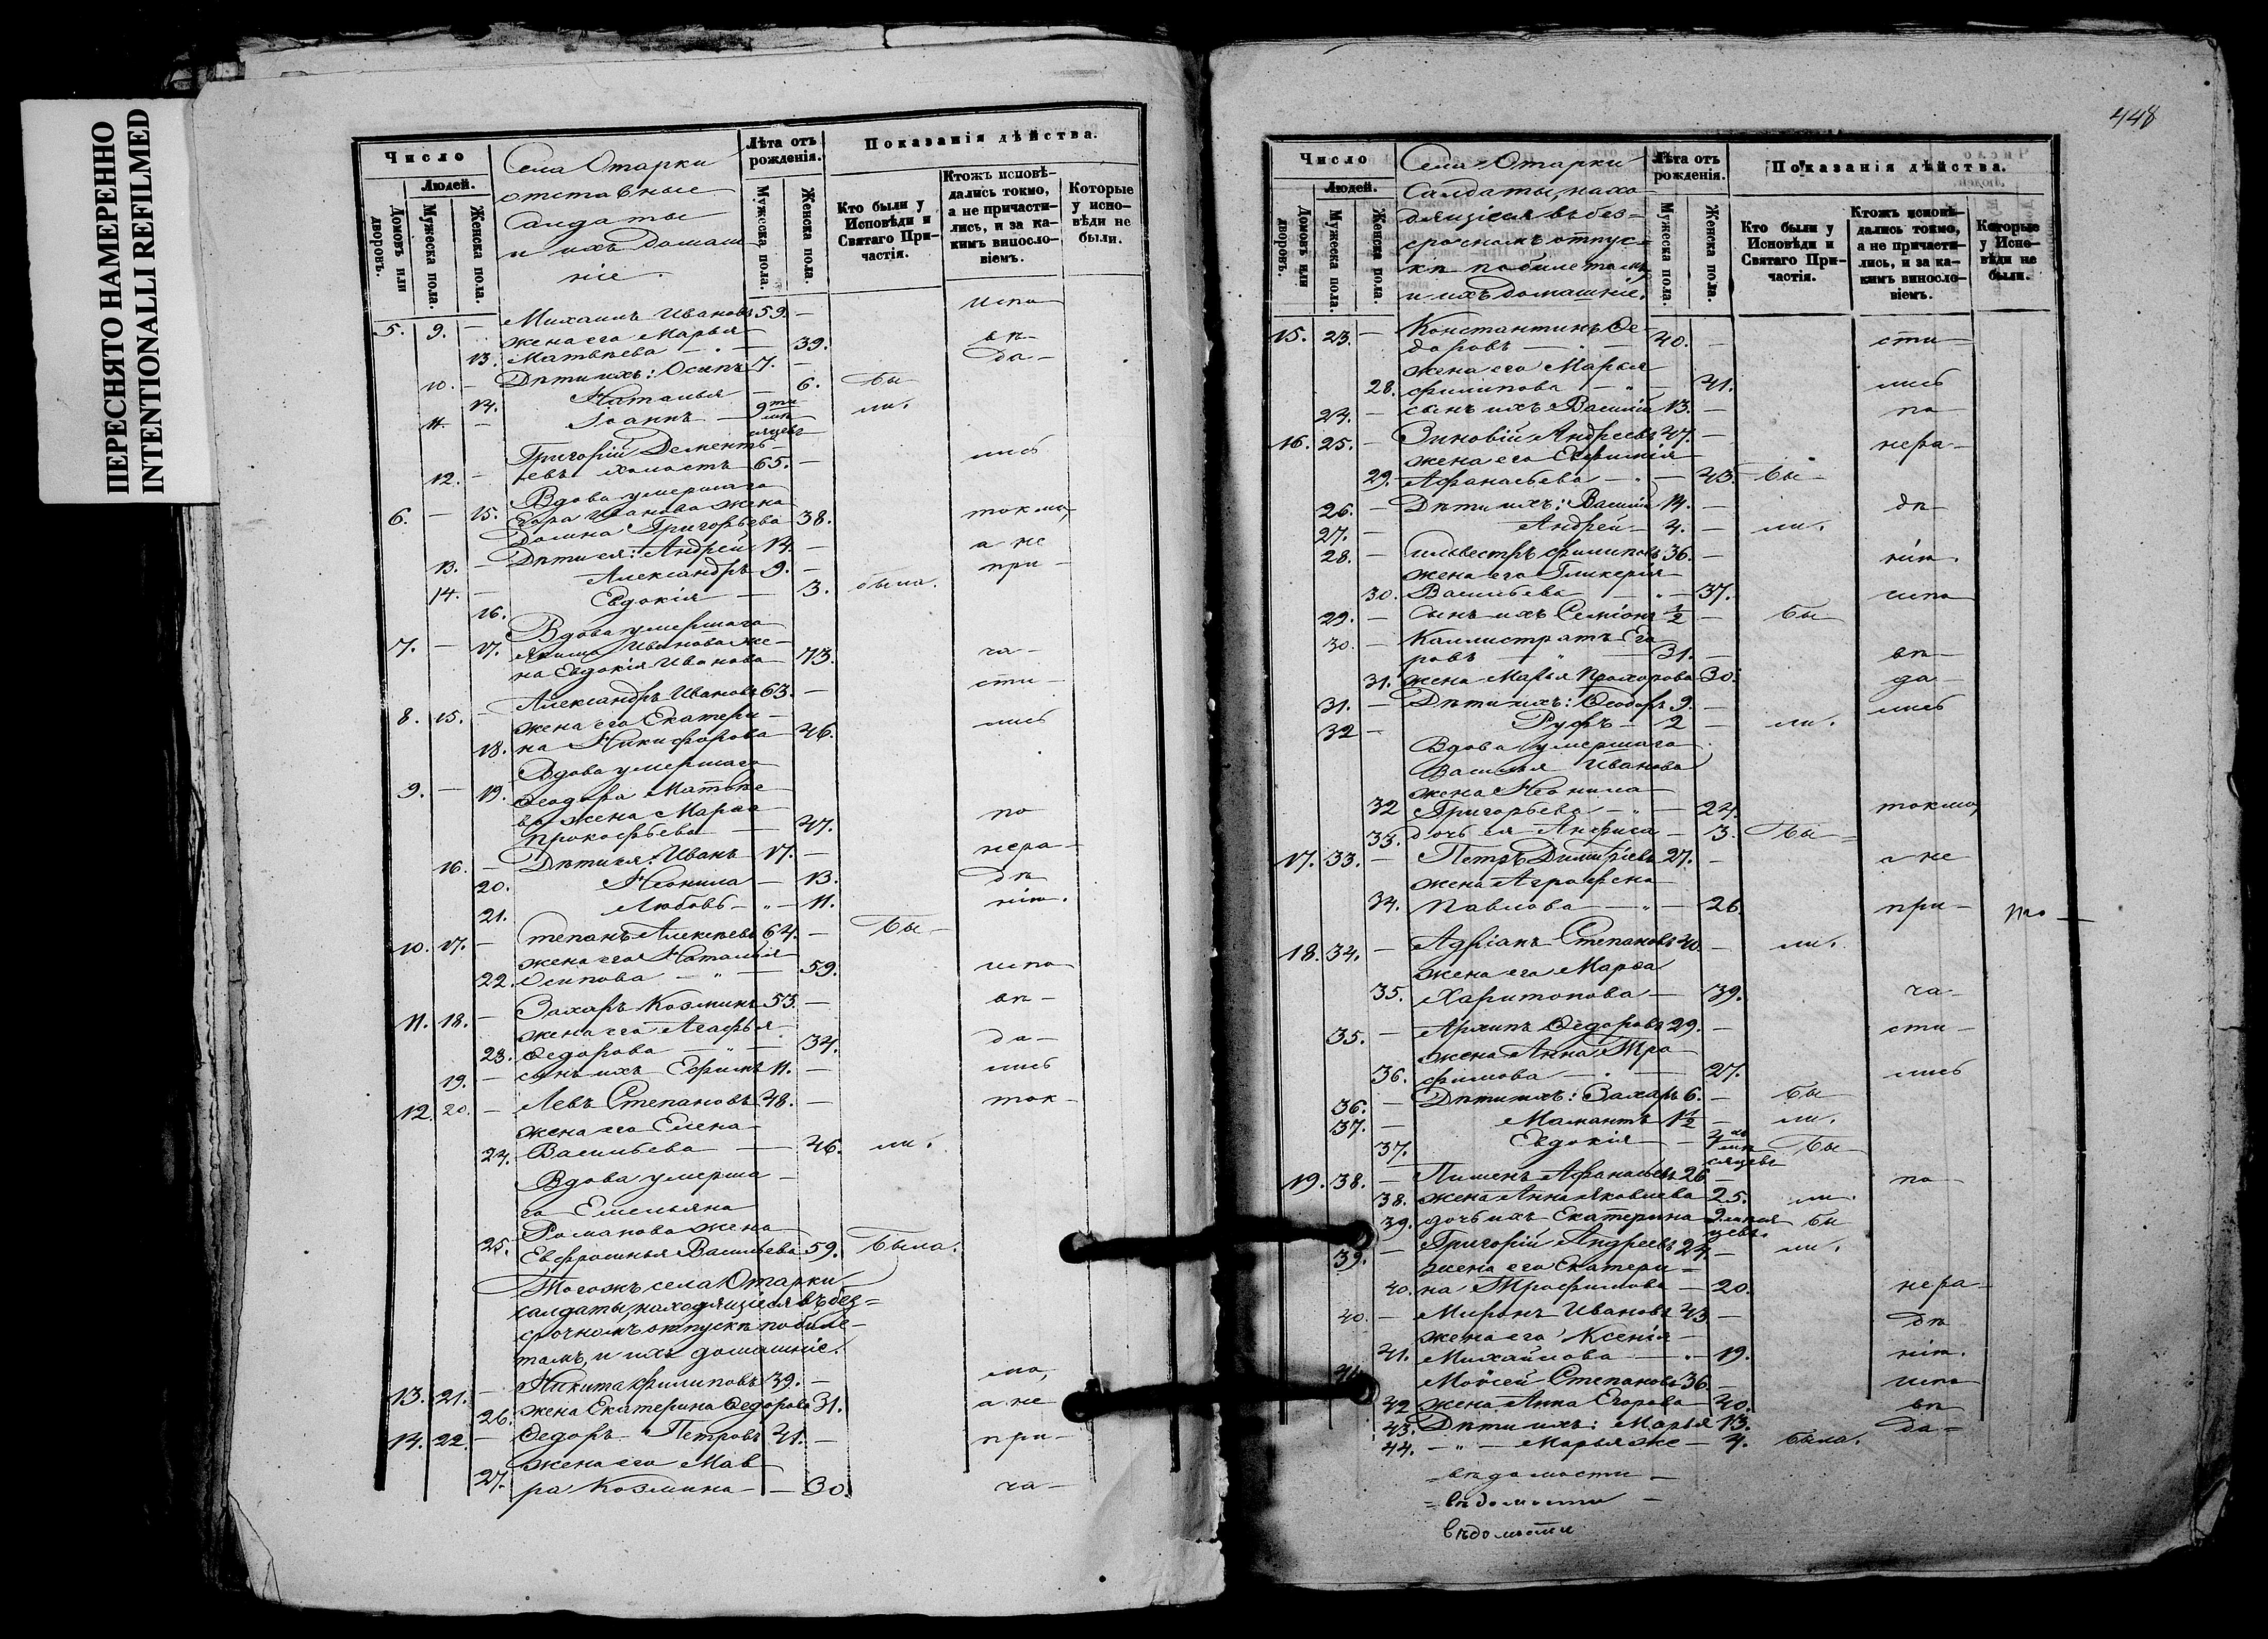 ПЕРЕСНЯТО НАМЕРЕННО
INTENTIONALLI REFILMED
Число
Людей.
Домовъ или дворовъ.
Мужеска пола.
Женска пола.
Села Отарки
отставные
Салдаты
и ихъ домаш
ніе.
Лѣта отъ рожденія.
Мужеска пола.
Женска пола.
Показанія дѣйства.
Кто были у Исповѣди и Святаго Причастія.
Ктожъ исповѣдались токмо, а не причастились, и за какимъ винословіемъ.
Которые у исповѣди не были.
5. 9. — Михаилъ Ивановъ 59. — испо
жена его Марья
13. Матвѣева — 39. вѣ—
10. — Дѣти ихъ: Осипъ 7. — да—
14. Наталья — 6. бы
11. — Іоаннъ — 9ти мѣсяцевъ ли.
Григорій Дементь
12. — евъ холостъ 65. — лись
Вдова умершаго
6. — 15. Егора Иванова жена
Домна Григорьева 38. токмо,
13. — Дѣти ея: Андрей 14. — а не
14. — Александръ 9. — при—
16. Евдокія — 3. была.
Вдова умершаго
7. — 17. Якима Иванова же—
на Евдокія Иванова 73. ча—
8. 15. — Александръ Ивановъ 63. — сти—
жена его Екатери—
18. на Никифорова 46. лись
Вдова умершаго
9. — 19. Ѳеодора Матвѣе
ва жена Марѳа
Прокофьева — 47. по
16. — Дѣти ея: Иванъ 17. — нера—
20. Неонила — 13. дѣ
21. Любовь — " — 11. нію.
10. 17. — тепанъ Алексѣевъ 64. — Бы—
жена его Наталья
22. Осипова — " — 59. испо
11. 18. — Захаръ Козминъ 53. — вѣ—
жена его Агафья
23. Ѳедорова — " — 34. да—
19. — сынъ ихъ Ефимъ 11. — лись
12. 20. — Левъ Степановъ 48. — ток—
жена его Елена
24. Васильева — 46. ли.
Вдова умерша—
го Емельяна
Романова жена
25. Евфросинья Васильева 59. Была.
Тогожъ села Отарки
салдаты, находящіеся въ без=
срочномъ отпуску по биле—
тамъ, и ихъ домашніе.
13. 21. — Никита Филиповъ 39. — мо,
26. жена Екатерина Ѳедорова 31. а не
14. 22. — Ѳедоръ Петровъ 41. — при—
жена его Мав
27. ра Козмина — — 30. ча—
448
Число
Людей.
Домовъ или дворовъ.
Мужеска пола.
Женска пола.
Села Отарки
Салдаты, нахо
дящіеся въ без=
срочномъ отпус=
кѣ по билетамъ
и ихъ домашніе.
Лѣта отъ рожденія.
Мужеска пола.
Женска пола.
Показанія дѣйства.
Кто были у Исповѣди и Святаго Причастія.
Ктожъ исповѣдались токмо, а не причастились, и за какимъ винословіемъ.
Которые у Исповѣди не были.
15. 23. — Константинъ Ѳе—
доровъ — " — 40. — сти—
жена его Марья
28. Филипова — " — 41. лись
24. — сынъ ихъ Василій 13. — по
16. 25. — Зиновій Андреевъ 47. — нера—
жена его Евфимія
29. Афанасьева — " — 43. Бы—
26. — Дѣти ихъ: Василій 14. — дѣ
27. — Андрей — 4. — ли.
28. — Сильвестръ Филиповъ 36. — нію.
жена его Гликерія
30. Васильева — " — 37. испо
29. — Сынъ ихъ Семіонъ 1/2 — Бы
30. — Каллистратъ Его
ровъ — " — 31. — вѣ—
31. жена Марья Прохорова 30. да—
31. — Дѣти ихъ: Ѳеодоръ 9. — лись
32 — Руфъ — 2 — ли.
Вдова умершаго
Василья Иванова
жена Неонила
32 Григорьева — " — 24. токмо,
33. дочь ея Анфиса — 3. Бы=
17. 33. — Петръ Димитріевъ 27. — а не
жена Аграфена
34. Павлова — " — 26. при—
18. 34. — Адріанъ Степановъ 40. — ли.
жена его Марѳа
35. Харитонова — 39. ча—
35. — Архипъ Ѳедоровъ 29. — сти—
жена Анна Тро
36. фимова — — 27. лись
36. — Дѣти ихъ: Захаръ 6. — бы
37. — Мамантъ 1 1/2 — ли.
37. Евдокія — 4 мѣсяцевъ бы
19. 38. — Пименъ Афанасьевъ 26 — по
38. жена Анна Яковлева 25. ли.
39. дочь ихъ Екатерина 9 мѣсяцевъ. бы
39. — Григорій Андреевъ 24. — ли.
жена его Екатери=
40. на Трофимова — 20. нера—
40. — Миронъ Ивановъ 43 — дѣ
жена его Ксенія
41. Михайлова — " — 19. нію.
41. Моисей Степановъ 36. — испо
42 жена Анна Егорова — 40. вѣ
43. Дѣти ихъ: Марья 13. да=
44. — " — Марья же — 4. была.
= вѣдомости —
= вѣдомости —
вѣдомости